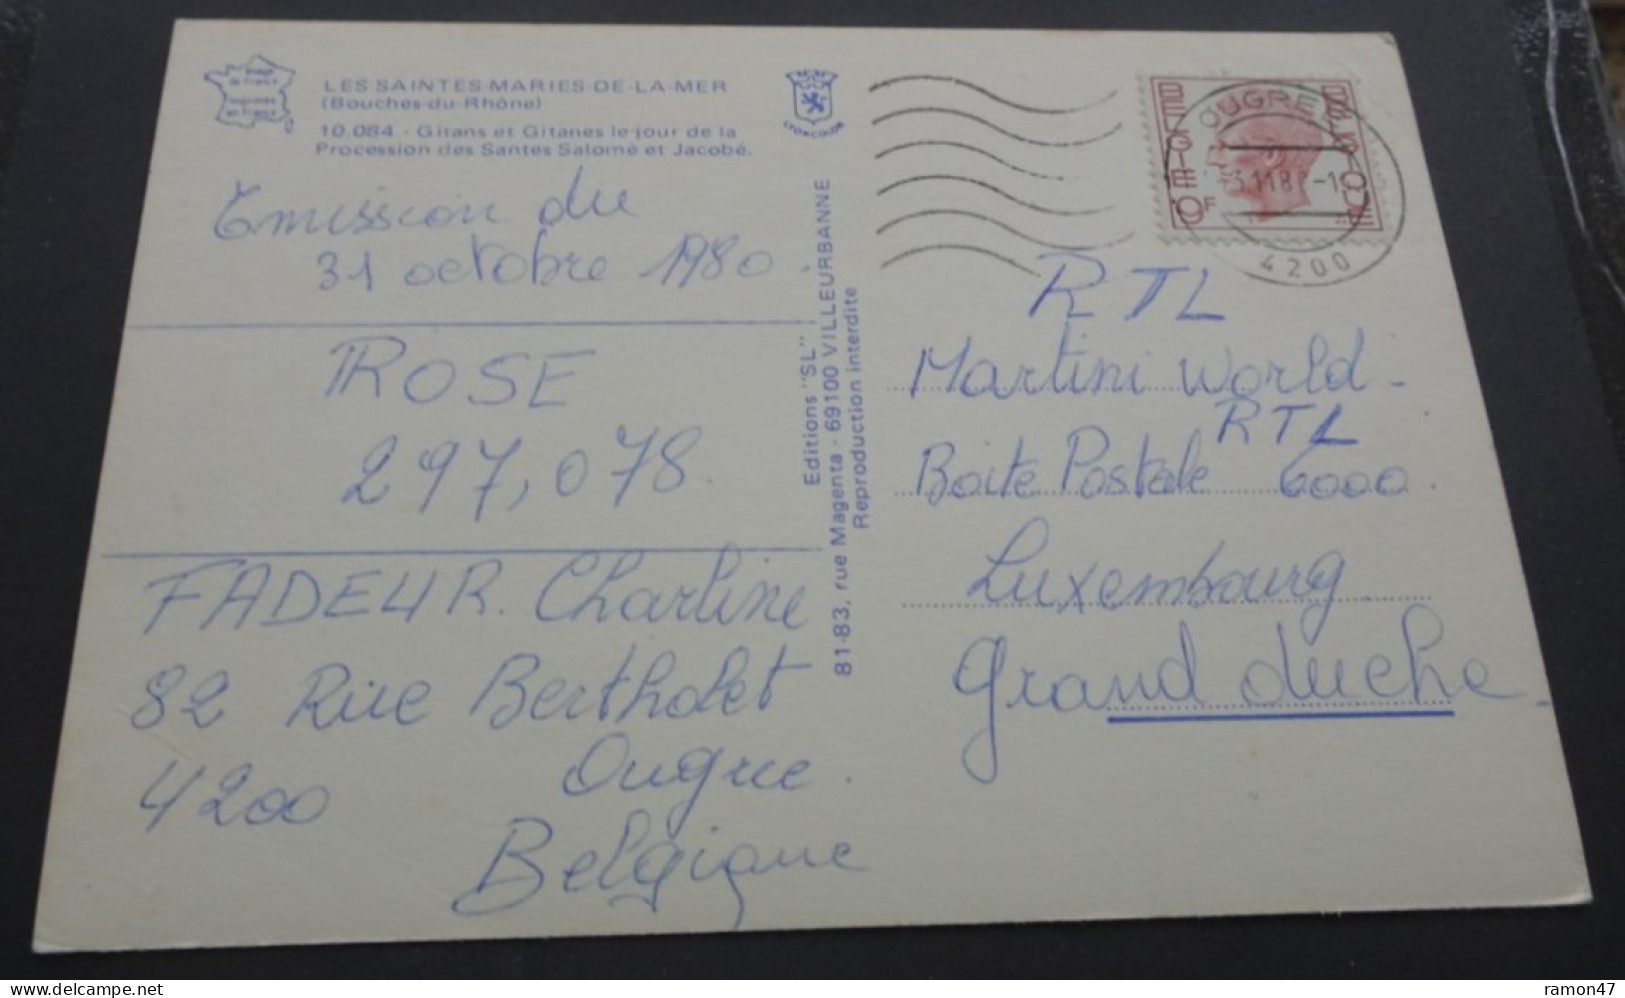 Image
de France
Imprimée
en France
LES SAINTES-MARIES-DE-LA-MER
(Bouches-du-Rhône)
10.084 - Gitans et Gitanes le jour de la
Procession des Santes Salomé et Jacobé.
LYONCOLOR
Emission du
31 octobre 1980.
ROSE
297,078.
FADEUR. Charline
82 Rue Bertholet
Ougree.
4200
Belgique
Editions "SL"
81-83, rue Magenta - 69100 VILLEURBANNE
Reproduction interdite
BELGIE
BELGIQUE
9F
OUGREE
4200
RTL
Martini World -
RTL
Boite Postale 6000.
Luxembourg
Grand duche
ramon47